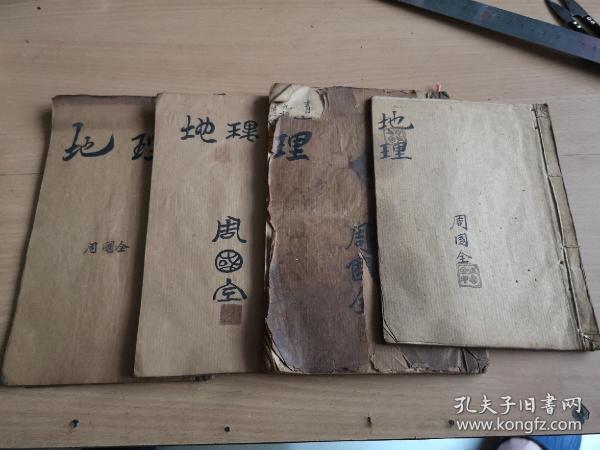 地理
周國全
地理
周國全
理
周國全
地理
周国全
孔夫子旧书网
www.kongfz.com